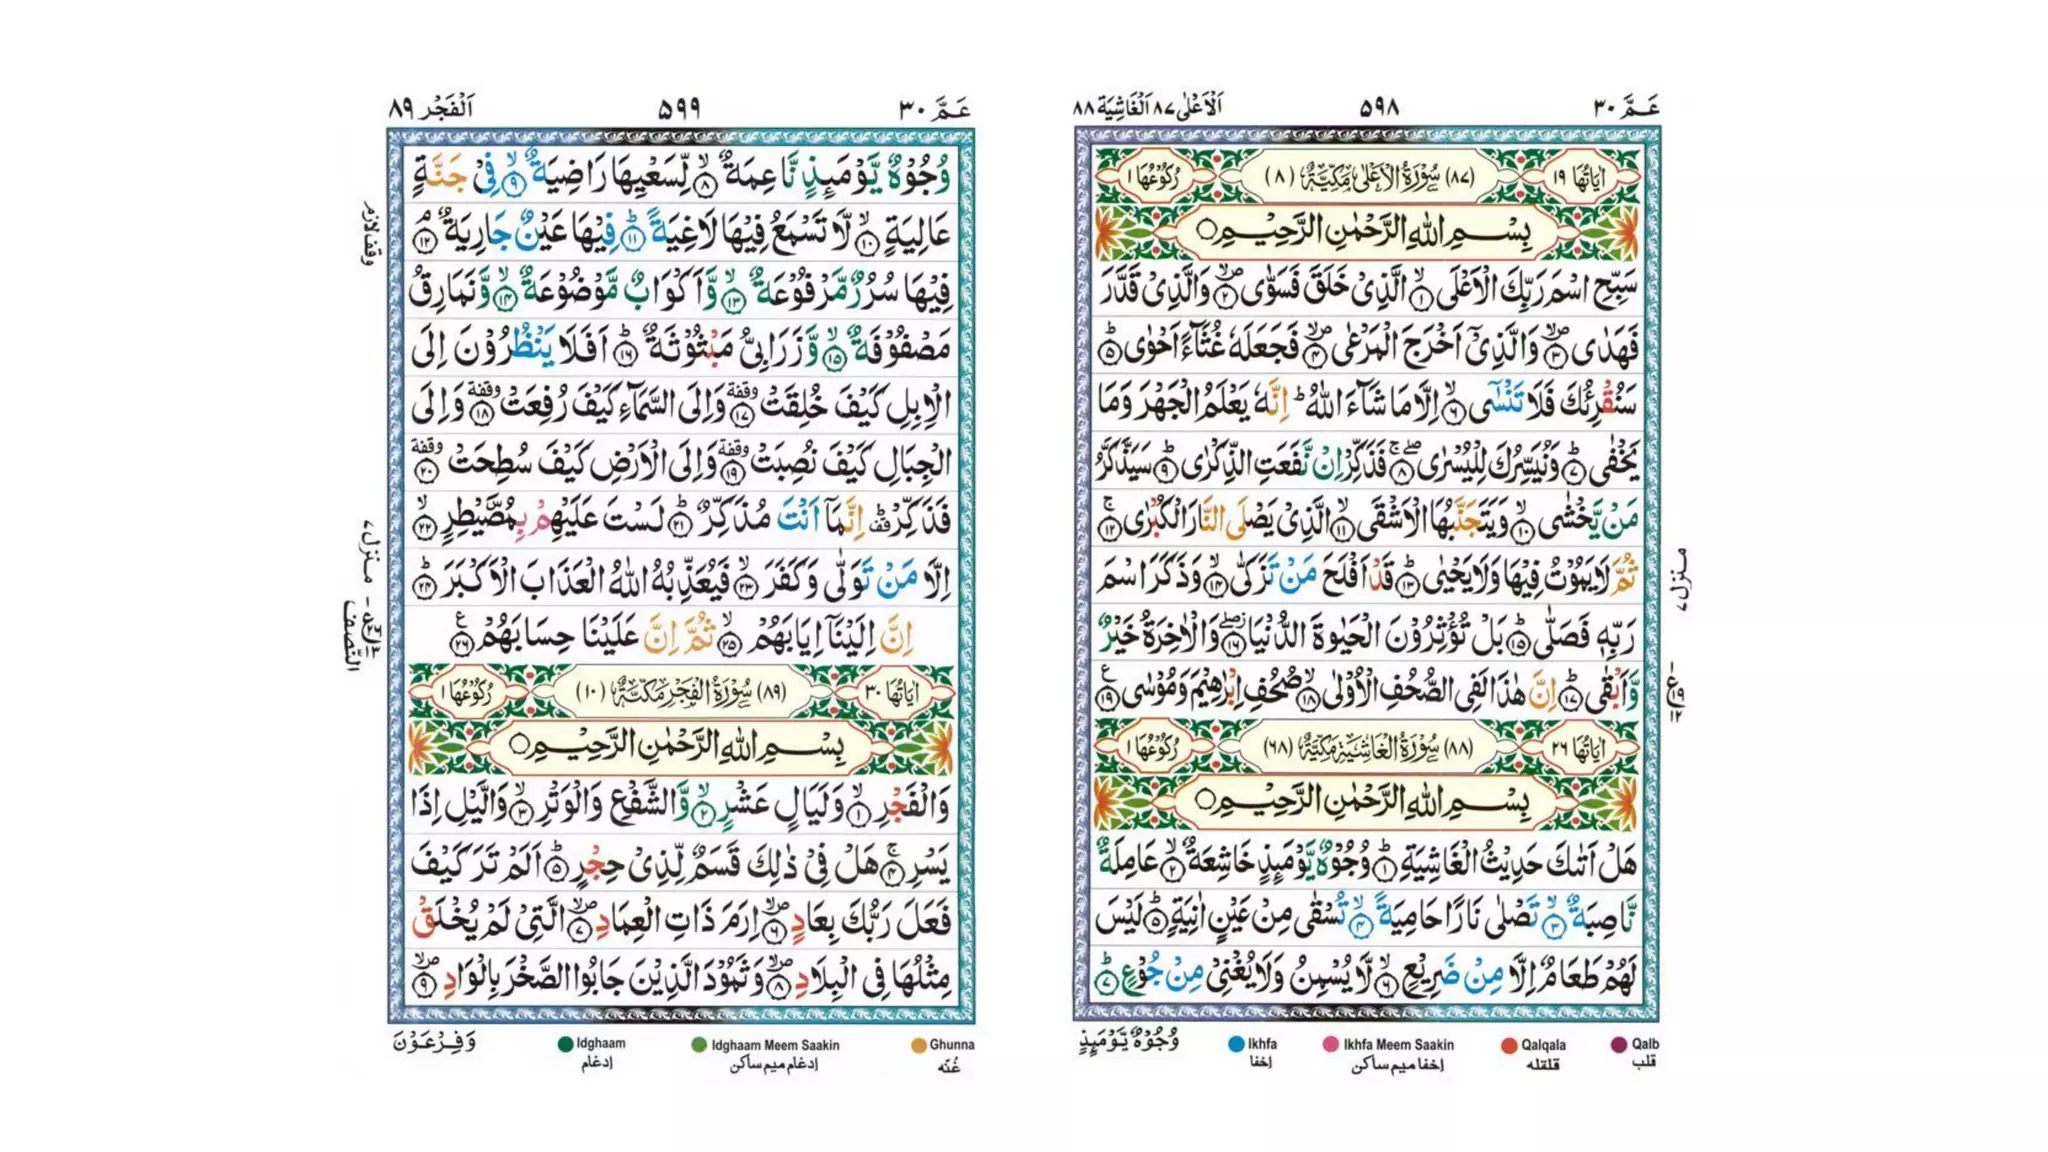 اَلْاَعْلٰى ٨٧ اَلْغَاشِيَة ٨٨
٥٩٨
عَـمَّ ٣٠
اٰيَاتُهَا ١٩
(٨٧) سُوْرَةُ الْاَعْلٰى مَكِّيَّةٌ (٨)
رُكُوْعُهَا ١
بِسْــمِ اللّٰهِ الرَّحْمٰنِ الرَّحِيْــمِ ۝
سَبِّحِ اسْمَ رَبِّكَ الْاَعْلَى ۙ﴿١﴾ الَّذِىْ خَلَقَ فَسَوّٰى ۪ۙ﴿٢﴾ وَالَّذِىْ قَدَّرَ
فَهَدٰى ۪ۙ﴿٣﴾ وَالَّذِىْٓ اَخْرَجَ الْمَرْعٰى ۪ۙ﴿٤﴾ فَجَعَلَهٗ غُثَآءً اَحْوٰى ؕ﴿٥﴾
سَنُقْرِئُكَ فَلَا تَنْسٰٓى ۙ﴿٦﴾ اِلَّا مَا شَآءَ اللّٰهُ ؕ اِنَّهٗ يَعْلَمُ الْجَهْرَ وَمَا
يَخْفٰى ؕ﴿٧﴾ وَنُيَسِّرُكَ لِلْيُسْرٰى ۚۖ﴿٨﴾ فَذَكِّرْ اِنْ نَّفَعَتِ الذِّكْرٰى ؕ﴿٩﴾ سَيَذَّكَّرُ
مَنْ يَّخْشٰى ۙ﴿١٠﴾ وَيَتَجَنَّبُهَا الْاَشْقَى ۙ﴿١١﴾ الَّذِىْ يَصْلَى النَّارَ الْكُبْرٰى ۚ﴿١٢﴾
ثُمَّ لَا يَمُوْتُ فِيْهَا وَلَا يَحْيٰى ؕ﴿١٣﴾ قَدْ اَفْلَحَ مَنْ تَزَكّٰى ۙ﴿١٤﴾ وَذَكَرَ اسْمَ
رَبِّهٖ فَصَلّٰى ؕ﴿١٥﴾ بَلْ تُؤْثِرُوْنَ الْحَيٰوةَ الدُّنْيَا ۖ﴿١٦﴾ وَالْاٰخِرَةُ خَيْرٌ
وَّاَبْقٰى ؕ﴿١٧﴾ اِنَّ هٰذَا لَفِى الصُّحُفِ الْاُوْلٰى ۙ﴿١٨﴾ صُحُفِ اِبْرٰهِيْمَ وَمُوْسٰى ﴿١٩﴾ ع
اٰيَاتُهَا ٢٦
(٨٨) سُوْرَةُ الْغَاشِيَةِ مَكِّيَّةٌ (٦٨)
رُكُوْعُهَا ١
بِسْــمِ اللّٰهِ الرَّحْمٰنِ الرَّحِيْــمِ ۝
هَلْ اَتٰىكَ حَدِيْثُ الْغَاشِيَةِ ؕ﴿١﴾ وُجُوْهٌ يَّوْمَئِذٍ خَاشِعَةٌ ۙ﴿٢﴾ عَامِلَةٌ
نَّاصِبَةٌ ۙ﴿٣﴾ تَصْلٰى نَارًا حَامِيَةً ۙ﴿٤﴾ تُسْقٰى مِنْ عَيْنٍ اٰنِيَةٍ ؕ﴿٥﴾ لَيْسَ
لَهُمْ طَعَامٌ اِلَّا مِنْ ضَرِيْعٍ ۙ﴿٦﴾ لَّا يُسْمِنُ وَلَا يُغْنِىْ مِنْ جُوْعٍ ؕ﴿٧﴾
منزل ٧
ع ١٩ ١٢
وُجُوْهٌ يَّوْمَئِذٍ
Ikhfa إخفا
Ikhfa Meem Saakin إخفا ميم ساكن
Qalqala قلقله
Qalb قلب
اَلْفَجْر ٨٩
٥٩٩
عَـمَّ ٣٠
وُجُوْهٌ يَّوْمَئِذٍ نَّاعِمَةٌ ۙ﴿٨﴾ لِّسَعْيِهَا رَاضِيَةٌ ۙ﴿٩﴾ فِىْ جَنَّةٍ
عَالِيَةٍ ۙ﴿١٠﴾ لَّا تَسْمَعُ فِيْهَا لَاغِيَةً ؕ﴿١١﴾ فِيْهَا عَيْنٌ جَارِيَةٌ ۘ﴿١٢﴾
فِيْهَا سُرُرٌ مَّرْفُوْعَةٌ ۙ﴿١٣﴾ وَّاَكْوَابٌ مَّوْضُوْعَةٌ ۙ﴿١٤﴾ وَّنَمَارِقُ
مَصْفُوْفَةٌ ۙ﴿١٥﴾ وَّزَرَابِىُّ مَبْثُوْثَةٌ ؕ﴿١٦﴾ اَفَلَا يَنْظُرُوْنَ اِلَى
الْاِبِلِ كَيْفَ خُلِقَتْ وقفة ﴿١٧﴾ وَاِلَى السَّمَآءِ كَيْفَ رُفِعَتْ وقفة ﴿١٨﴾ وَاِلَى
الْجِبَالِ كَيْفَ نُصِبَتْ وقفة ﴿١٩﴾ وَاِلَى الْاَرْضِ كَيْفَ سُطِحَتْ وقفة ﴿٢٠﴾
فَذَكِّرْ قف اِنَّمَآ اَنْتَ مُذَكِّرٌ ؕ﴿٢١﴾ لَسْتَ عَلَيْهِمْ بِمُصَۜيْطِرٍ ۙ﴿٢٢﴾
اِلَّا مَنْ تَوَلّٰى وَكَفَرَ ۙ﴿٢٣﴾ فَيُعَذِّبُهُ اللّٰهُ الْعَذَابَ الْاَكْبَرَ ؕ﴿٢٤﴾
اِنَّ اِلَيْنَآ اِيَابَهُمْ ۙ﴿٢٥﴾ ثُمَّ اِنَّ عَلَيْنَا حِسَابَهُمْ ﴿٢٦﴾ ع
اٰيَاتُهَا ٣٠
(٨٩) سُوْرَةُ الْفَجْرِ مَكِّيَّةٌ (١٠)
رُكُوْعُهَا ١
بِسْــمِ اللّٰهِ الرَّحْمٰنِ الرَّحِيْــمِ ۝
وَالْفَجْرِ ۙ﴿١﴾ وَلَيَالٍ عَشْرٍ ۙ﴿٢﴾ وَّالشَّفْعِ وَالْوَتْرِ ۙ﴿٣﴾ وَالَّيْلِ اِذَا
يَسْرِ ۚ﴿٤﴾ هَلْ فِىْ ذٰلِكَ قَسَمٌ لِّذِىْ حِجْرٍ ؕ﴿٥﴾ اَلَمْ تَرَ كَيْفَ
فَعَلَ رَبُّكَ بِعَادٍ ۪ۙ﴿٦﴾ اِرَمَ ذَاتِ الْعِمَادِ ۪ۙ﴿٧﴾ الَّتِىْ لَمْ يُخْلَقْ
مِثْلُهَا فِى الْبِلَادِ ۪ۙ﴿٨﴾ وَثَمُوْدَ الَّذِيْنَ جَابُوا الصَّخْرَ بِالْوَادِ ۪ۙ﴿٩﴾
وقف لازم
منزل ٧
النّصف
وَ فِرْعَوْنَ
Idghaam إدغام
Idghaam Meem Saakin إدغام ميم ساكن
Ghunna غُنّه